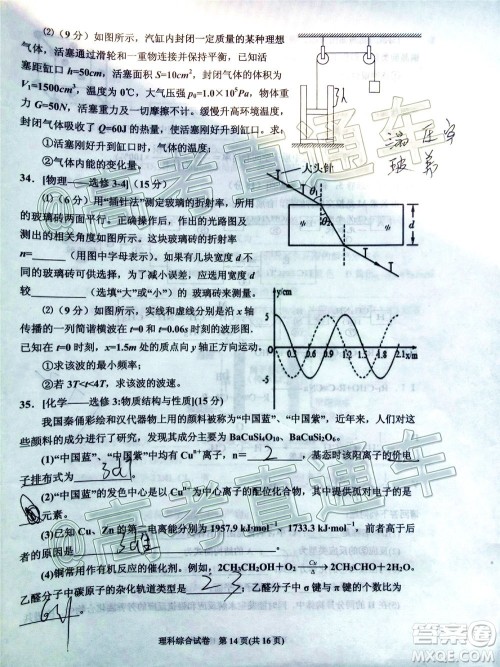 (2)（9分）如图所示，汽缸内封闭一定质量的某种理想
气体，活塞通过滑轮和一重物连接并保持平衡，已知活
塞距缸口 h=50cm，活塞面积 S=10cm²，封闭气体的体积为
V₁=1500cm³，温度为 0℃，大气压强 p₀=1.0×10⁵Pa，物体重
力 G=50N，活塞重力及一切摩擦不计。缓慢升高环境温度，
封闭气体吸收了 Q=60J 的热量，使活塞刚好升到缸口。求：
①活塞刚好升到缸口时，气体的温度；
②气体内能的变化量。
34. [物理——选修 3-4]（15 分）
(1)（6 分）用“插针法”测定玻璃的折射率，所用
的玻璃砖两面平行。正确操作后，作出的光路图及
测出的相关角度如图所示。这块玻璃砖的折射率
n=（用图中字母表示）。如果有几块宽度不
同的玻璃砖可供选择，为了减小误差，应选用宽度 d
较（选填“大”或“小”）的 玻璃砖来测量。
大头针
θ₁
θ₂
d
(2)（9 分）如图所示，实线和虚线分别是沿 x 轴
传播的一列简谐横波在 t=0 和 t=0.06s 时刻的波形图。
已知在 t=0 时刻，x=1.5m 处的质点向 y 轴正方向运动。
①求该波的最小频率；
②若 3T<t<4T，求该波的波速。
y/cm
5
0
-5
0.3 0.6 1.2 1.5 4.8 2.1 x/m
35. [化学——选修 3:物质结构与性质](15 分)
我国秦俑彩绘和汉代器物上用的颜料被称为“中国蓝”、“中国紫”，近年来，人们对
这些颜料的成分进行了研究，发现其成分主要为 BaCuSi₄O₁₀、BaCuSi₂O₆。
(1)“中国蓝”、“中国紫”中均有 Cuⁿ⁺离子，n= 2 ，基态时该阳离子的价电
子排布式为
(2)“中国蓝”的发色中心是以 Cuⁿ⁺为中心离子的配位化合物，其中提供孤对电子的是
元素。
(3)已知 Cu、Zn 的第二电离能分别为 1957.9 kJ·mol⁻¹、1733.3 kJ·mol⁻¹，前者高于后
者的原因是
(4)铜常用作有机反应的催化剂。例如，2CH₃CH₂OH＋O₂ Cu △ 2CH₃CHO＋2H₂O。
乙醛分子中碳原子的杂化轨道类型是
乙醛分子中 σ 键与 π 键的个数比为
理科综合试卷 第 14 页(共 16 页)
高考直通车